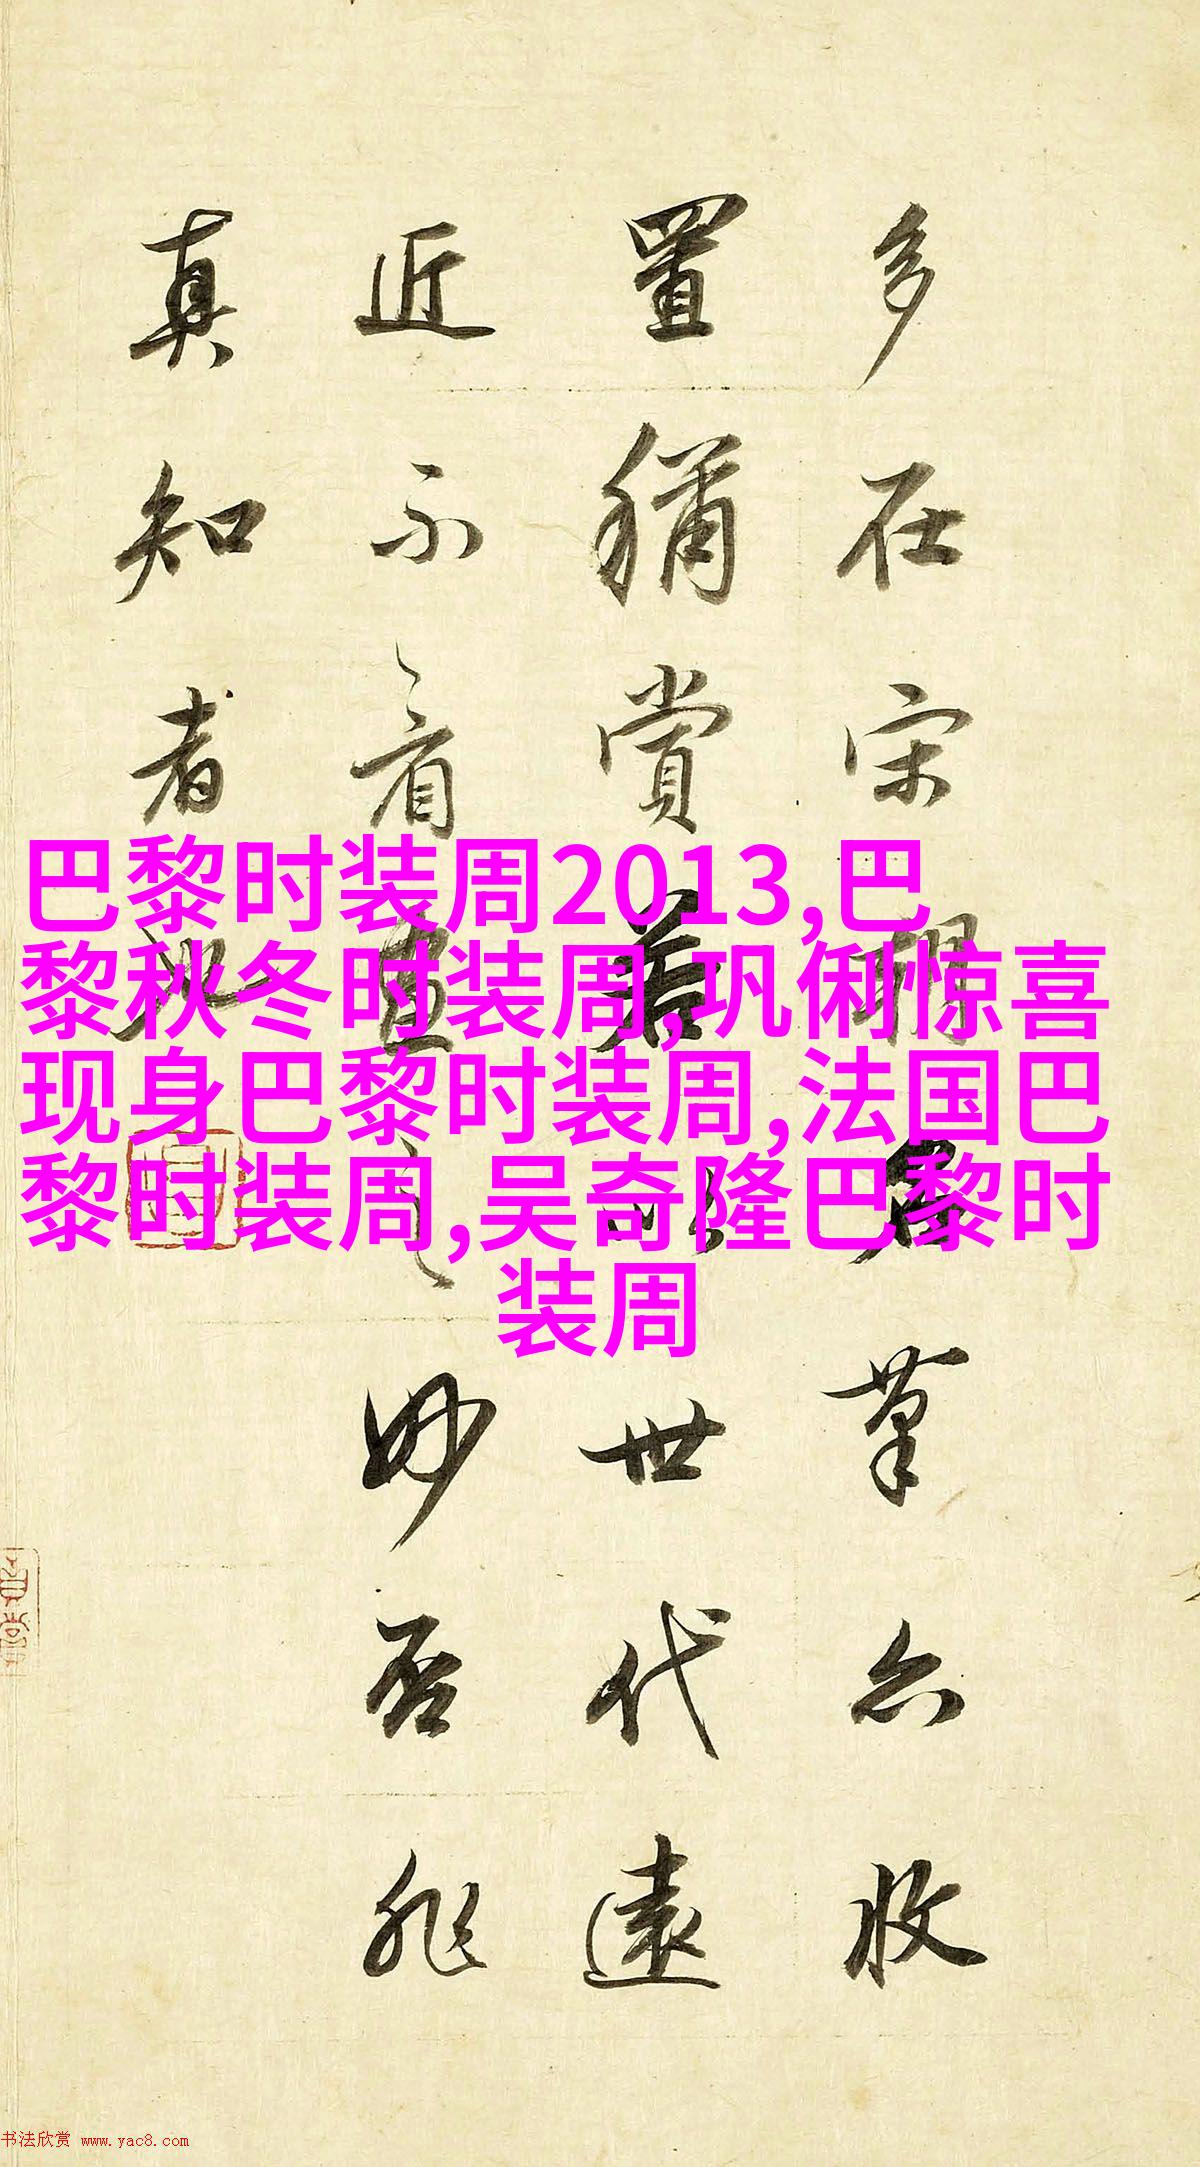 多在宋名筆亦收
置稱賞若以世代遠
近不看畫之妙否非
真知者也
巴黎时装周2013,巴
黎秋冬时装周,巩俐惊喜
现身巴黎时装周,法国巴
黎时装周,吴奇隆巴黎时
装周
书法欣赏 www.yac8.com